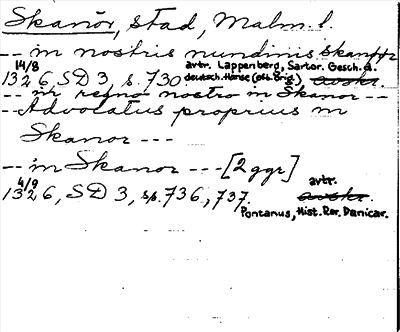 Skanör, stad, Malm. l.
-- in nostris nundinis skanør
14/8 avtr. Lappenberg, Sartor. Gesch. d.
1326, SD 3, s. 730. deutsch. Hanse (oft. Brig.) avskr.
-- in regno nostro in Skanor --
-- Advocatus proprius in
Skanor ---
-- in Skanor --- [2 ggr]
4/9 avtr.
1326, SD 3, ss. 736, 737. avskr.
Pontanus, Hist. Rer. Danicar.